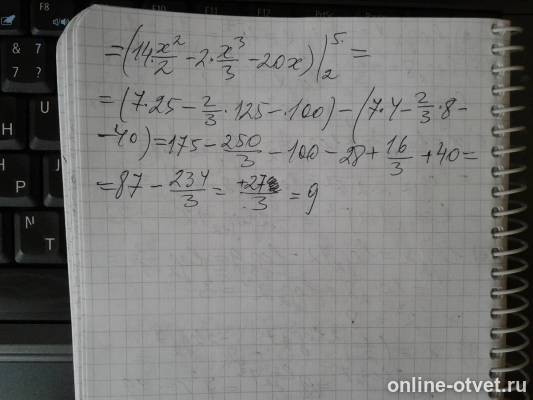 = (14·x²/2 - 2·x³/3 - 20x) |₂⁵ =
= (7·25 - 2/3·125 - 100) - (7·4 - 2/3·8 -
- 40) = 175 - 250/3 - 100 - 28 + 16/3 + 40 =
= 87 - 234/3 = +27/3 = 9
online-otvet.ru